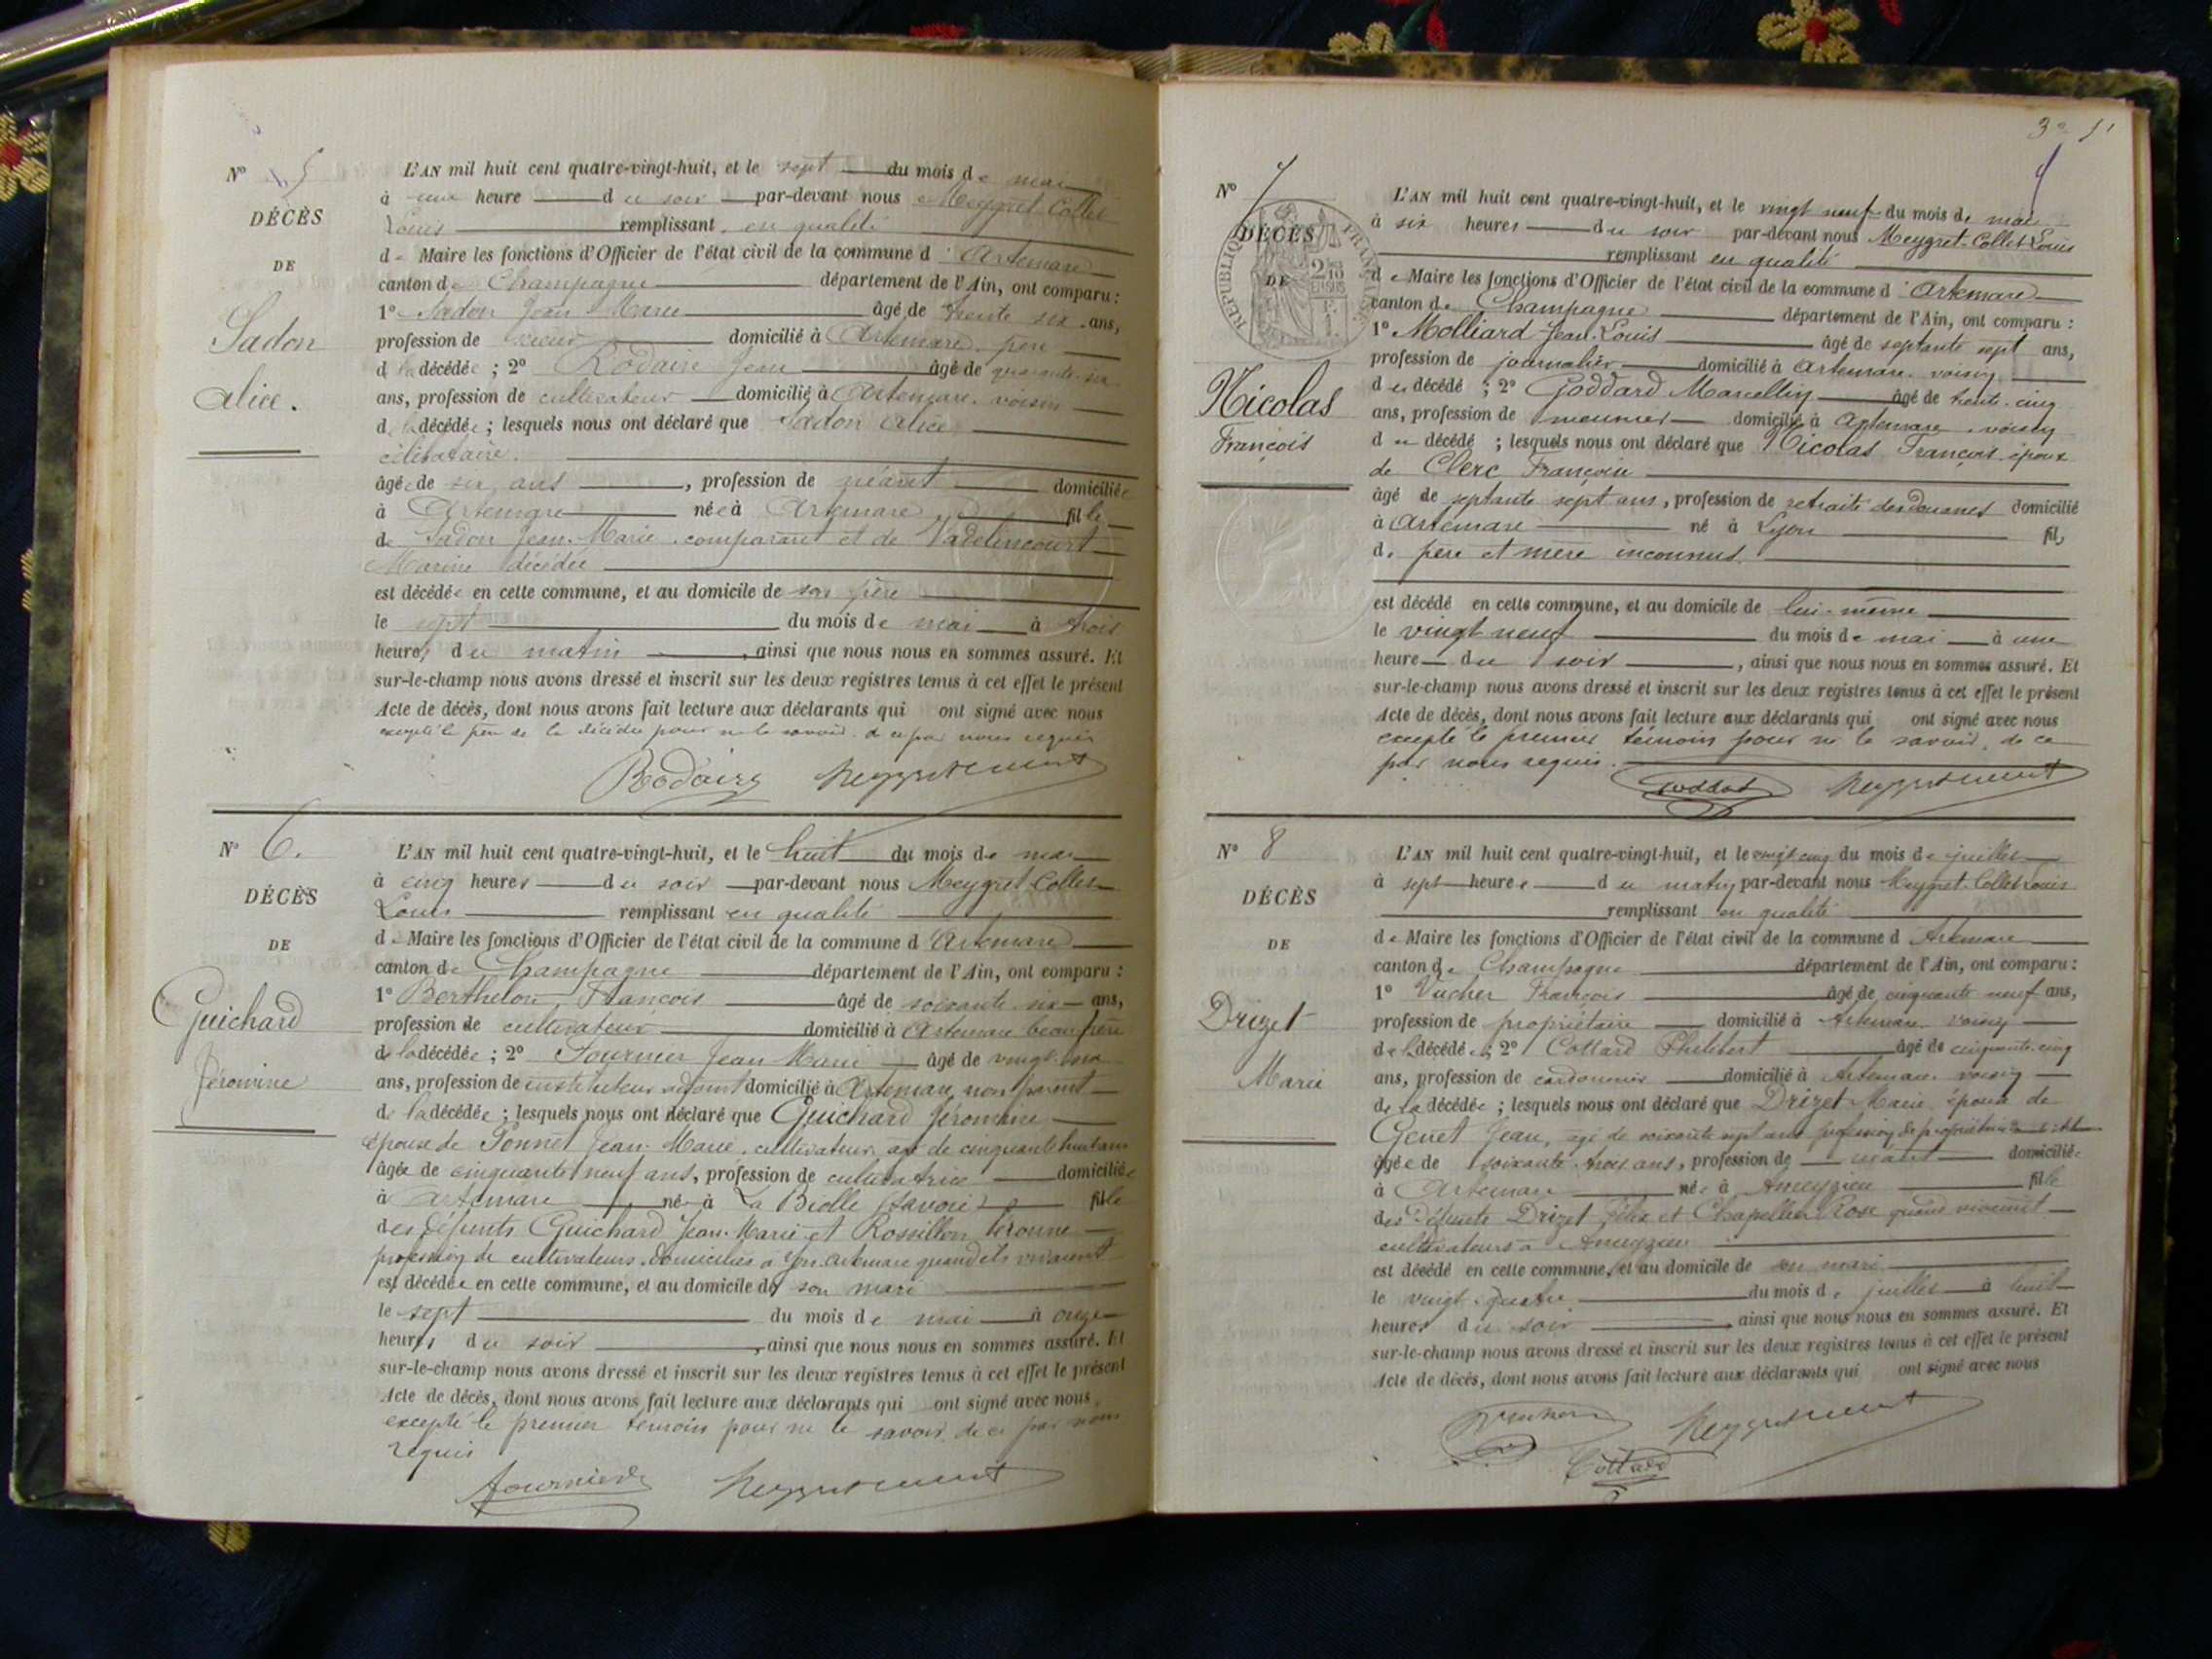 N° 5
DÉCÈS
DE
Sadon
Alice.
L'AN mil huit cent quatre-vingt-huit, et le sept du mois de mai
à une heure du soir par-devant nous Meygret-Collet
Louis remplissant en qualité
de Maire les fonctions d'Officier de l'état civil de la commune d'Artemare
canton de Champagne département de l'Ain, ont comparu :
1° Sadon Jean Marie âgé de trente six ans,
profession de domicilié à Artemare père
de la décédée ; 2° Rodaire Jean âgé de quarante six
ans, profession de cultivateur domicilié à Artemare voisin
de la décédée ; lesquels nous ont déclaré que Sadon Alice
célibataire.
âgée de six ans, profession de néant domiciliée
à Artemare née à Artemare fille
de Sadon Jean-Marie comparant et de Vadelincourt
décédée
est décédée en cette commune, et au domicile de son père
le sept du mois de mai à trois
heures du matin, ainsi que nous nous en sommes assuré. Et
sur-le-champ nous avons dressé et inscrit sur les deux registres tenus à cet effet le présent
Acte de décès, dont nous avons fait lecture aux déclarants qui ont signé avec nous
excepté le père de la décédée pour ne le savoir de ce par nous requis
Rodaire
N° 6.
DÉCÈS
DE
Guichard
Jéromine
L'AN mil huit cent quatre-vingt-huit, et le huit du mois de mai
à cinq heures du soir par-devant nous Meygret-Collet
Louis remplissant en qualité
de Maire les fonctions d'Officier de l'état civil de la commune d'Artemare
canton de Champagne département de l'Ain, ont comparu :
1° Berthelon François âgé de soixante six ans,
profession de cultivateur domicilié à Artemare beau frère
de la décédée ; 2° Fournier Jean Marie âgé de vingt
ans, profession de instituteur adjoint domicilié à Artemare non parent
de la décédée ; lesquels nous ont déclaré que Guichard Jéromine
épouse de Ponnet Jean-Marie, cultivateur, âgé de cinquante huit ans
âgée de cinquante neuf ans, profession de cultivatrice domiciliée
à Artemare née à La Biolle (Savoie) fille
des défunts Guichard Jean-Marie et Rossillon
profession de cultivateurs domiciliés à Artemare quand ils vivaient
est décédée en cette commune, et au domicile de son mari
le sept du mois de mai à onze
heures du soir, ainsi que nous nous en sommes assuré. Et
sur-le-champ nous avons dressé et inscrit sur les deux registres tenus à cet effet le présent
Acte de décès, dont nous avons fait lecture aux déclarants qui ont signé avec nous,
excepté le premier témoin pour ne le savoir de ce par nous
requis
Fournier
3
N° 7
DÉCÈS
DE
RÉPUBLIQUE FRANÇAISE
Nicolas
François
L'AN mil huit cent quatre-vingt-huit, et le vingt neuf du mois de mai
à six heures du soir par-devant nous Meygret-Collet Louis
remplissant en qualité
de Maire les fonctions d'Officier de l'état civil de la commune d'Artemare
canton de Champagne département de l'Ain, ont comparu :
1° Molliard Jean-Louis âgé de septante sept ans,
profession de journalier domicilié à Artemare voisin
du décédé ; 2° Goddard Marcellin âgé de trente-cinq
ans, profession de meunier domicilié à Artemare voisin
du décédé ; lesquels nous ont déclaré que Nicolas François époux
de Clerc Françoise
âgé de septante sept ans, profession de retraité des douanes domicilié
à Artemare né à Lyon fils
de père et mère inconnus.
est décédé en cette commune, et au domicile de lui-même
le vingt neuf du mois de mai à une
heure du soir, ainsi que nous nous en sommes assuré. Et
sur-le-champ nous avons dressé et inscrit sur les deux registres tenus à cet effet le présent
Acte de décès, dont nous avons fait lecture aux déclarants qui ont signé avec nous
excepté le premier témoin pour ne le savoir, de ce
par nous requis.
N° 8
DÉCÈS
DE
Drizet
Marie
L'AN mil huit cent quatre-vingt-huit, et le vingt cinq du mois de juillet
à sept heures du matin par-devant nous Meygret-Collet Louis
remplissant en qualité
de Maire les fonctions d'Officier de l'état civil de la commune d'Artemare
canton de Champagne département de l'Ain, ont comparu :
1° Vucher François âgé de cinquante neuf ans,
profession de propriétaire domicilié à Artemare voisin
de la décédée ; 2° Cottard Philibert âgé de cinquante-cinq
ans, profession de cordonnier domicilié à Artemare voisin
de la décédée ; lesquels nous ont déclaré que Drizet Marie épouse de
Genet Jean, âgé de soixante sept ans profession de propriétaire
âgée de soixante trois ans, profession de néant domiciliée
à Artemare née à Ameyzieu fille
des défunts Drizet Félix et Chapelle Rose quand vivaient
cultivateurs à Ameyzieu
est décédé en cette commune, et au domicile de son mari
le vingt-quatre du mois de juillet à huit
heures du soir, ainsi que nous nous en sommes assuré. Et
sur-le-champ nous avons dressé et inscrit sur les deux registres tenus à cet effet le présent
Acte de décès, dont nous avons fait lecture aux déclarants qui ont signé avec nous
Cottard